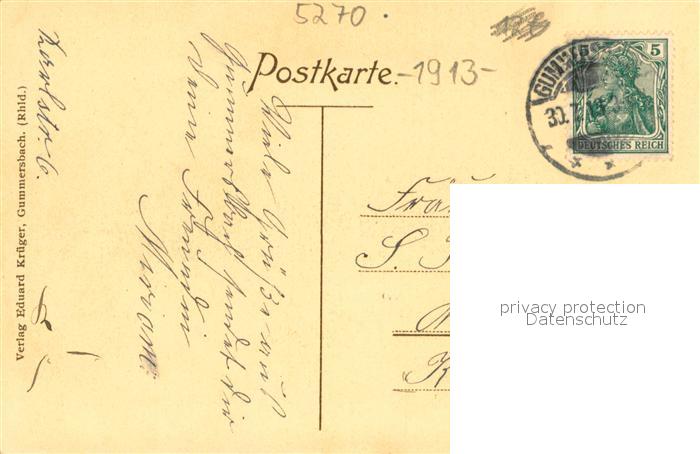 5270.
126
Postkarte.
-1913-
GUMMERS
30.7.13
5
DEUTSCHES REICH
Viele Grüße aus
Gummersbach sendet dir
deine Freundin
Miriam.
Karlstr. 6.
Verlag Eduard Krüger, Gummersbach. (Rhld.)
S.
K
privacy protection
Datenschutz